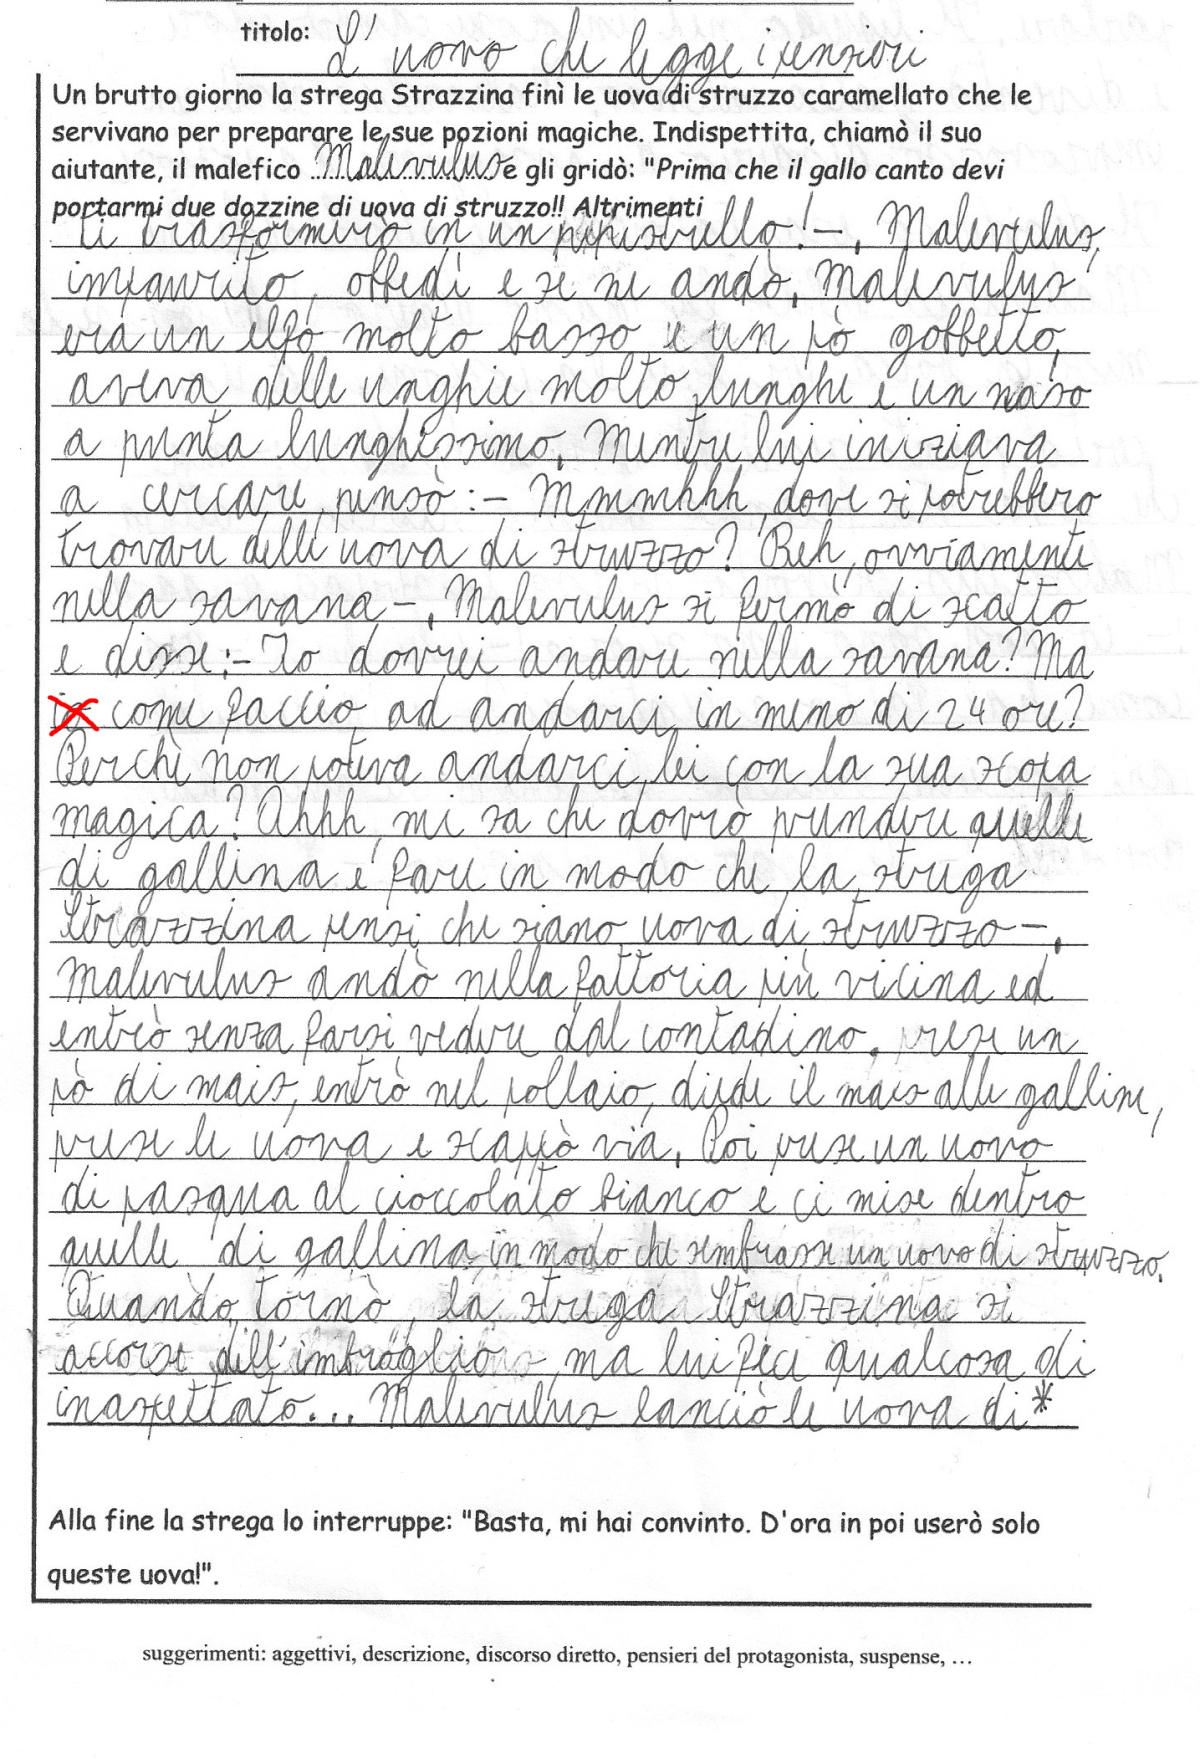 titolo: L'uovo che legge i pensieri
Un brutto giorno la strega Strazzina finì le uova di struzzo caramellato che le
servivano per preparare le sue pozioni magiche. Indispettita, chiamò il suo
aiutante, il malefico Malevulus e gli gridò: "Prima che il gallo canto devi
portarmi due dozzine di uova di struzzo!! Altrimenti
ti trasformerò in un pipistrello!-. Malevulus,
impaurito, obbedì e se ne andò. Malevulus
era un elfo molto basso e un pò gobbetto,
aveva delle unghie molto lunghe e un naso
a punta lunghissimo. Mentre lui iniziava
a cercare, pensò:- Mmmmhhh, dove si potrebbero
trovare delle uova di struzzo? Beh, ovviamente
nella savana-. Malevulus si fermò di scatto
e disse:- Io dovrei andare nella savana? Ma
io come faccio ad andarci in meno di 24 ore?
Perchè non poteva andarci lei con la sua scopa
magica? Ahhh, mi sa che dovrò prendere quelle
di gallina e fare in modo che la strega
Strazzina pensi che siano uova di struzzo-.
Malevulus andò nella fattoria più vicina ed
entrò senza farsi vedere dal contadino. prese un
pò di mais, entrò nel pollaio, diede il mais alle galline,
prese le uova e scappò via. Poi prese un uovo
di pasqua al cioccolato bianco e ci mise dentro
quelle di gallina in modo che sembrasse un uovo di struzzo.
Quando tornò, la strega Strazzina si
accorse dell'imbroglio, ma lui fece qualcosa di
inaspettato... Malevulus lanciò le uova di*
Alla fine la strega lo interruppe: "Basta, mi hai convinto. D'ora in poi userò solo
queste uova!".
suggerimenti: aggettivi, descrizione, discorso diretto, pensieri del protagonista, suspense, ...